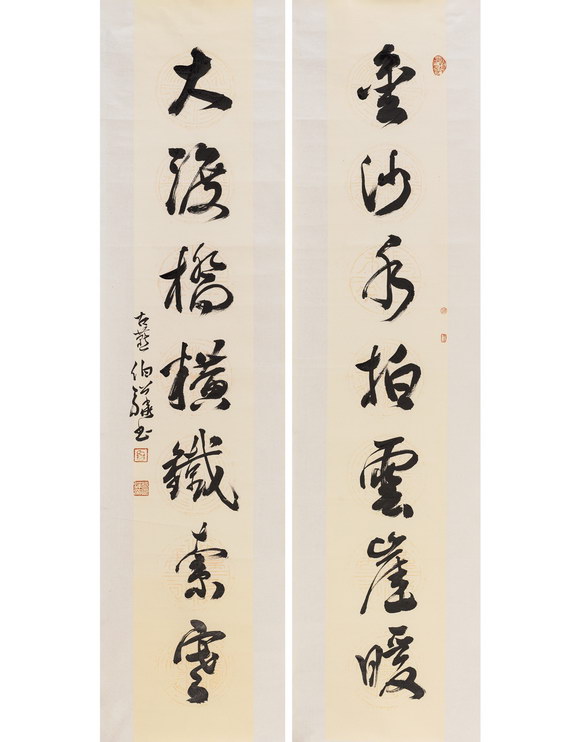 金沙水拍雲崖暖
大渡橋橫鐵索寒
古燕伯